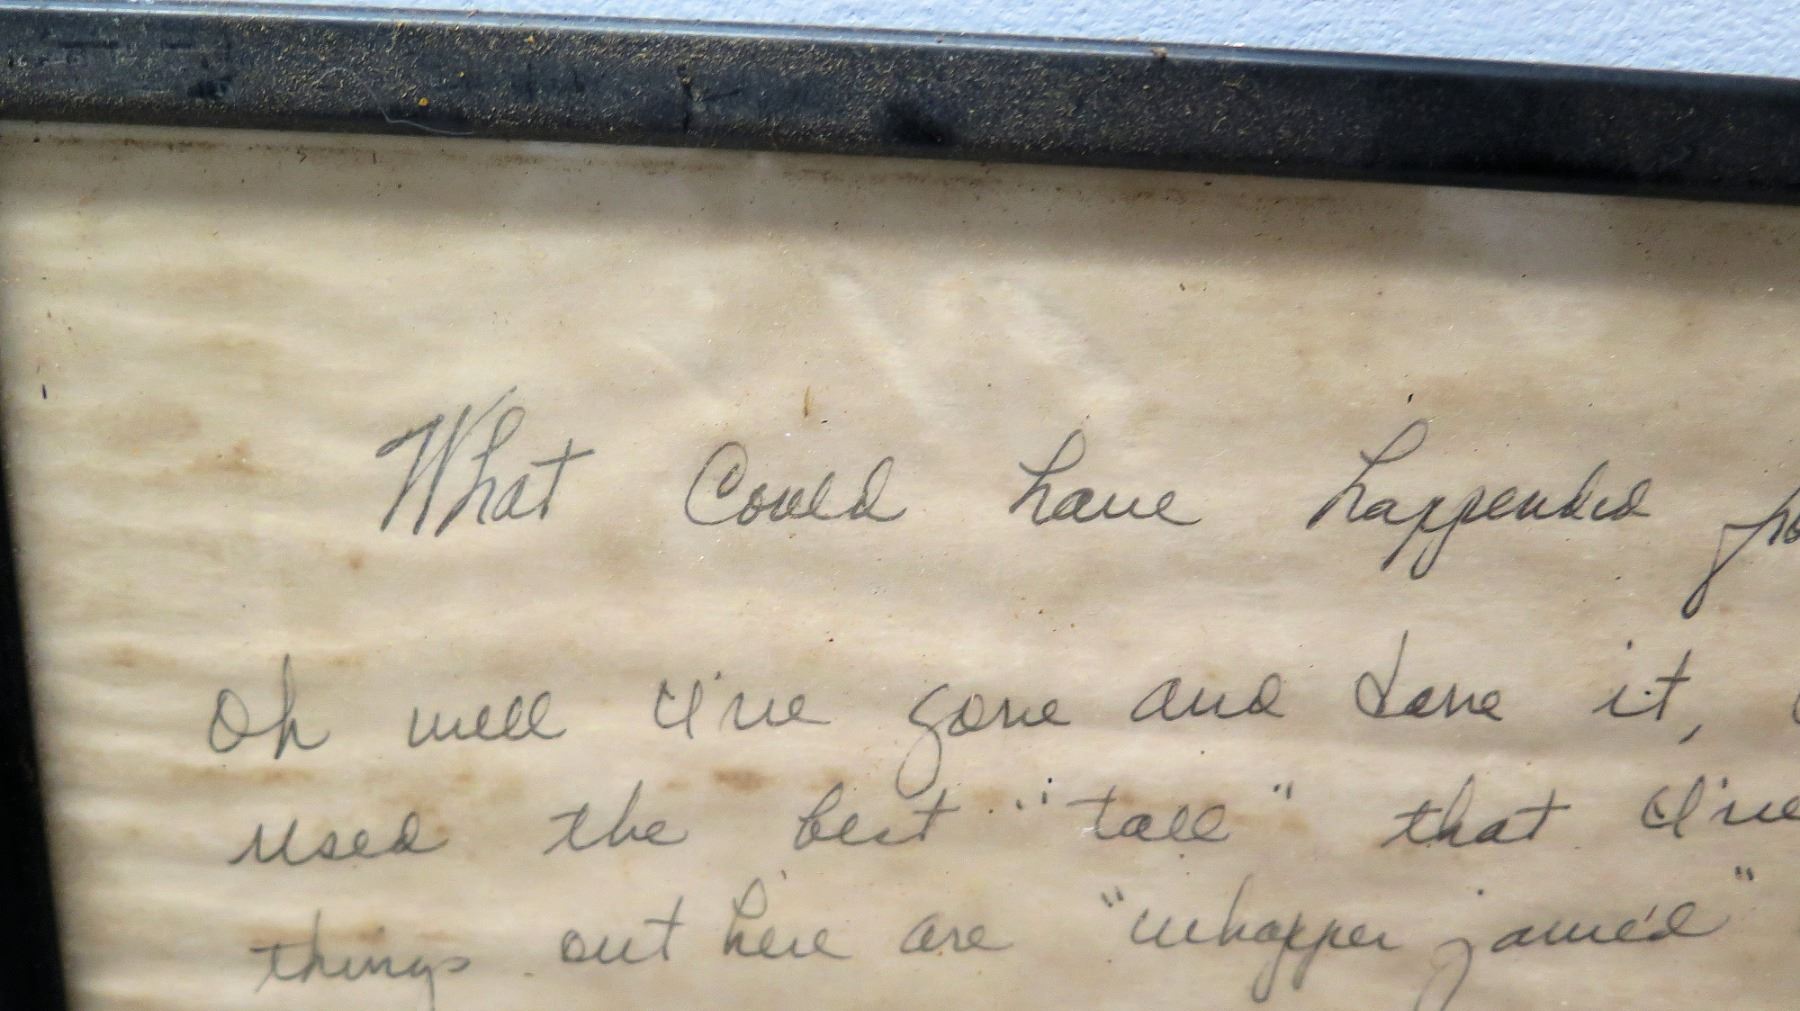 What Could have happended
Oh well I've gone and done it,
used the best "tall" that I've
things out here are "whapper jawed"